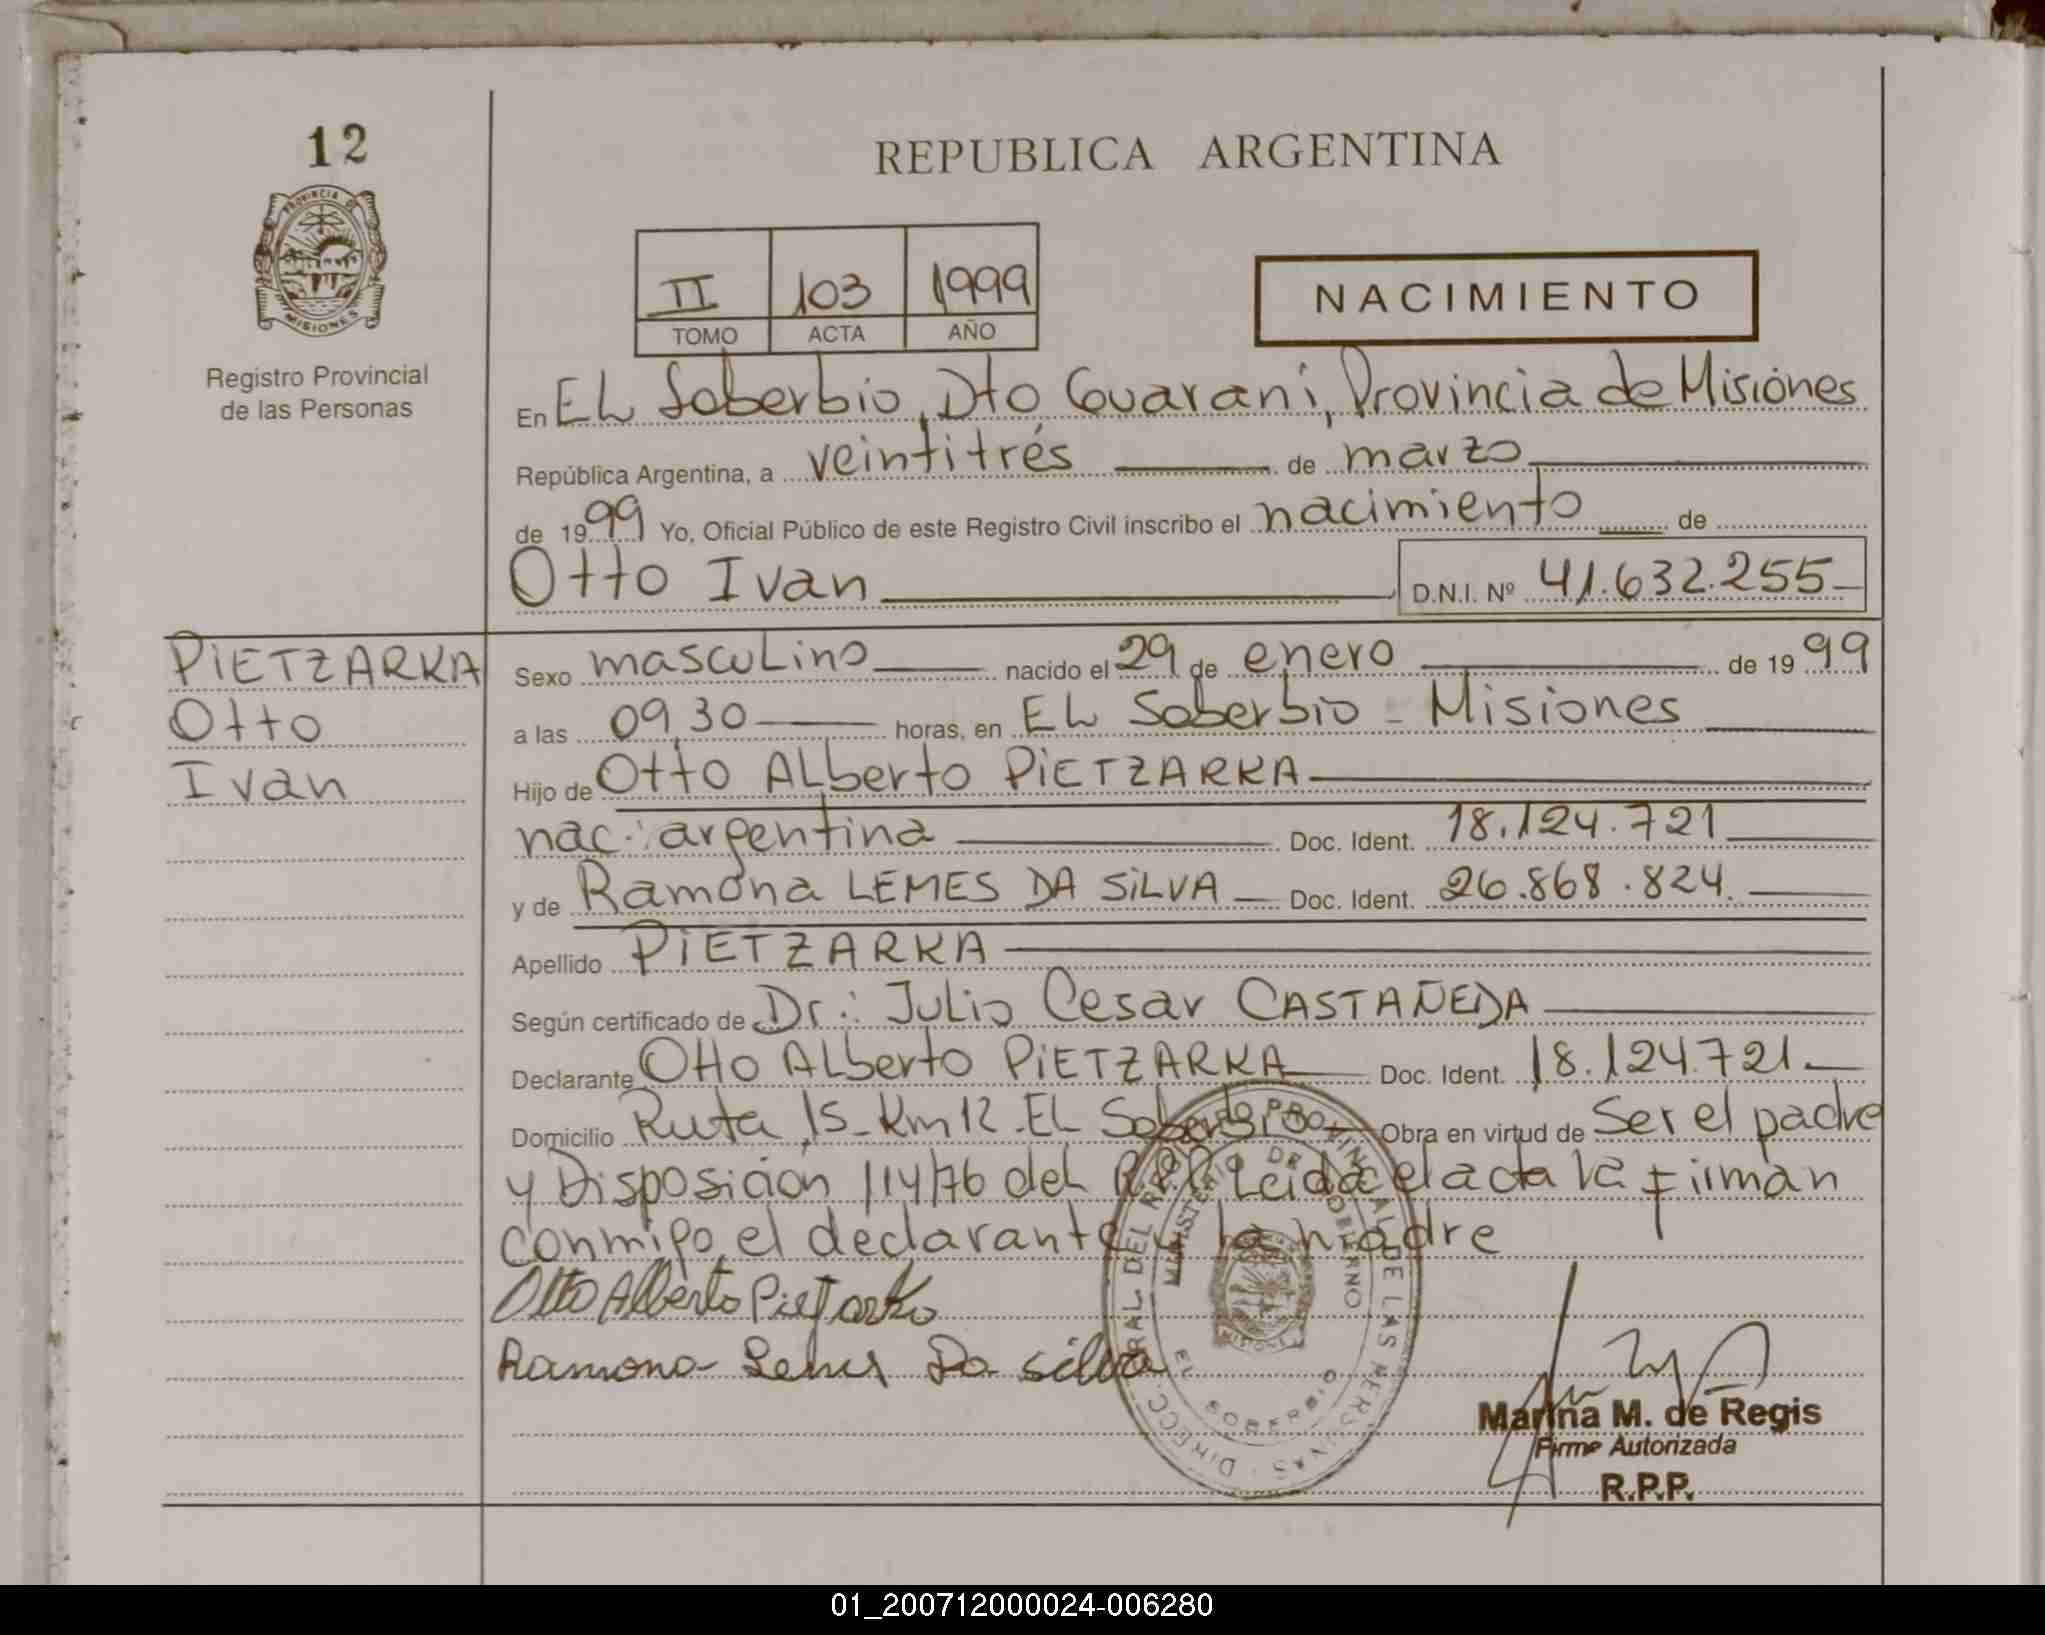 12
REPUBLICA ARGENTINA
PROVINCIA DE
MISIONES
Registro Provincial
de las Personas
II 103 1999
TOMO ACTA AÑO
NACIMIENTO
En EL Soberbio, Dto Guarani, Provincia de Misiones
República Argentina, a veintitrés de marzo
de 1999 Yo, Oficial Público de este Registro Civil inscribo el nacimiento de
Otto Ivan D.N.I. Nº 41.632.255
PiETZARKA
Otto
Ivan
Sexo masculino nacido el 29 de enero de 1999
a las 09,30 horas, en EL Soberbio - Misiones
Hijo de Otto ALberto PiETZARKA
nac: argentina Doc. Ident. 18.124.721
y de Ramona LEMES DA SiLVA Doc. Ident. 26.868.824.
Apellido PiETZARKA
Según certificado de Dr: Julio Cesar CASTAÑEDA
Declarante Otto ALberto PiETZARKA Doc. Ident. 18.124.721
Domicilio Ruta 15 - Km 12 - EL Soberbio Obra en virtud de Ser el padre
y Disposición 114/76 del R.P.P. Leida el acta la firman
conmigo, el declarante y la madre
Otto Alberto Pietzarka
Ramona Lemes Da silva
DIRECC. GRAL. DEL REGISTRO PROVINCIAL DE LAS PERSONAS
MINISTERIO DE GOBIERNO
MISIONES
EL SOBERBIO
Marina M. de Regis
Firma Autorizada
R.P.P.
01_200712000024-006280